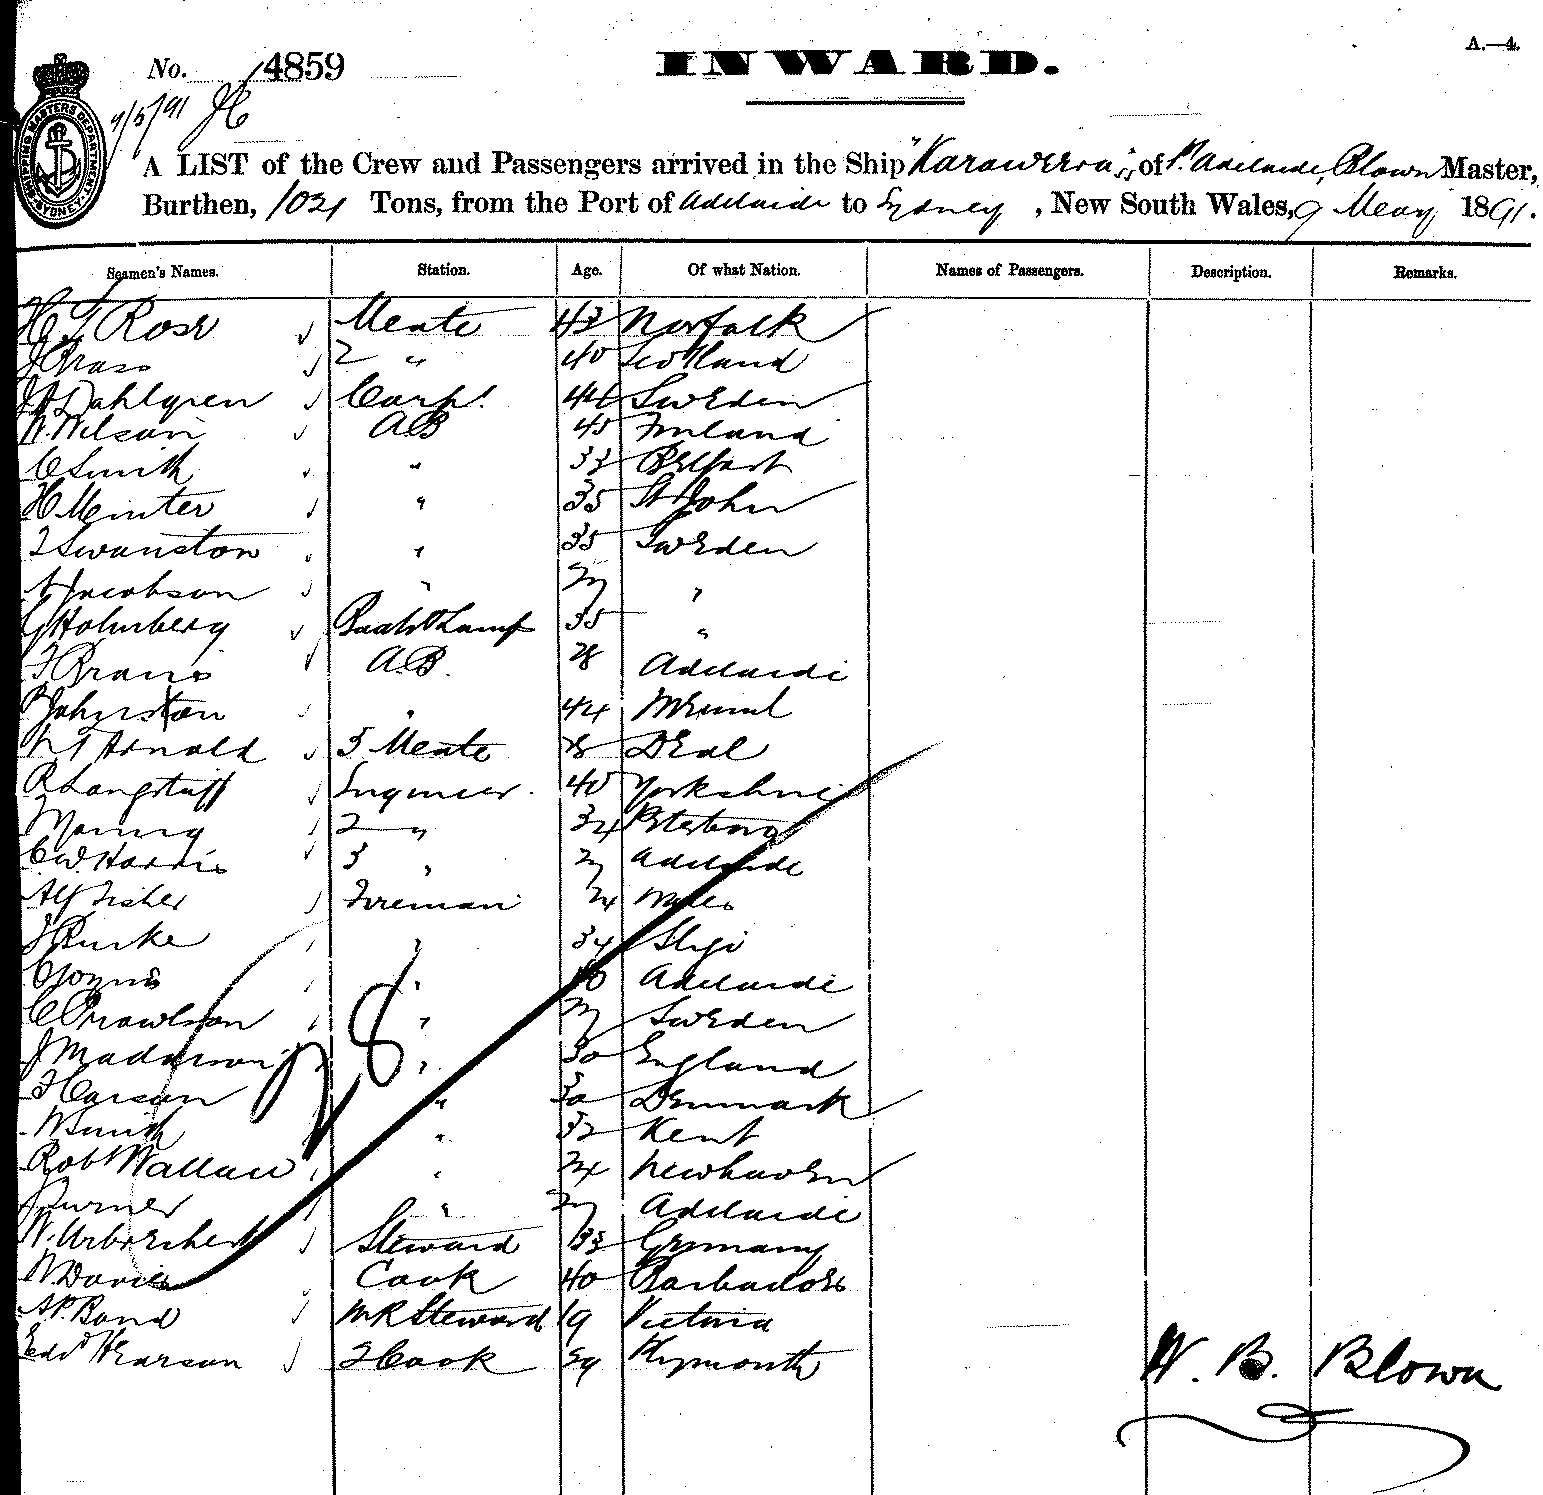 INWARD.
A.—4.
No. 4859
9/5/91
SHIPPING MASTERS DEPARTMENT SYDNEY
A LIST of the Crew and Passengers arrived in the Ship "Karaweera" of Pt. Adelaide, Blown Master,
Burthen, 1031 Tons, from the Port of Adelaide to Sydney, New South Wales, 9 May 1891.
Seamen's Names. Station. Age. Of what Nation. Names of Passengers. Description. Remarks.
H T Rose Mate 43 Norfolk
J Grass 2 " 40 Scotland
Dahlgren Carp. 44 Sweden
W. Wilson AB 45 Finland
C Smith " 33 Belfast
H Minter " 35 St John
Swanston " 35 Sweden
Jacobson " 27 "
G Holmberg & Lamp 35 "
F A.B. 28 Adelaide
Johnston " 44
Arnold 3 Mate 28 Deal
R Langstaff Engineer 40 Yorkshire
Young 2 " 34
C. W. Harris 3 " 27 Adelaide
Alf Fisher Fireman 24 Wales
J Burke " 34 Sligo
" 40 Adelaide
C " 27 Sweden
J " 30 England
" 30 Denmark
W Smith " 32 Kent
Robt Wallace " 24 Newhaven
" 27 Adelaide
W. Steward 33 Germany
W Davies Cook 40 Barbados
A P. Bond M R Steward 19 Victoria
Edwd Hearson 2 Cook 29 Plymouth
28
W. B. Blown